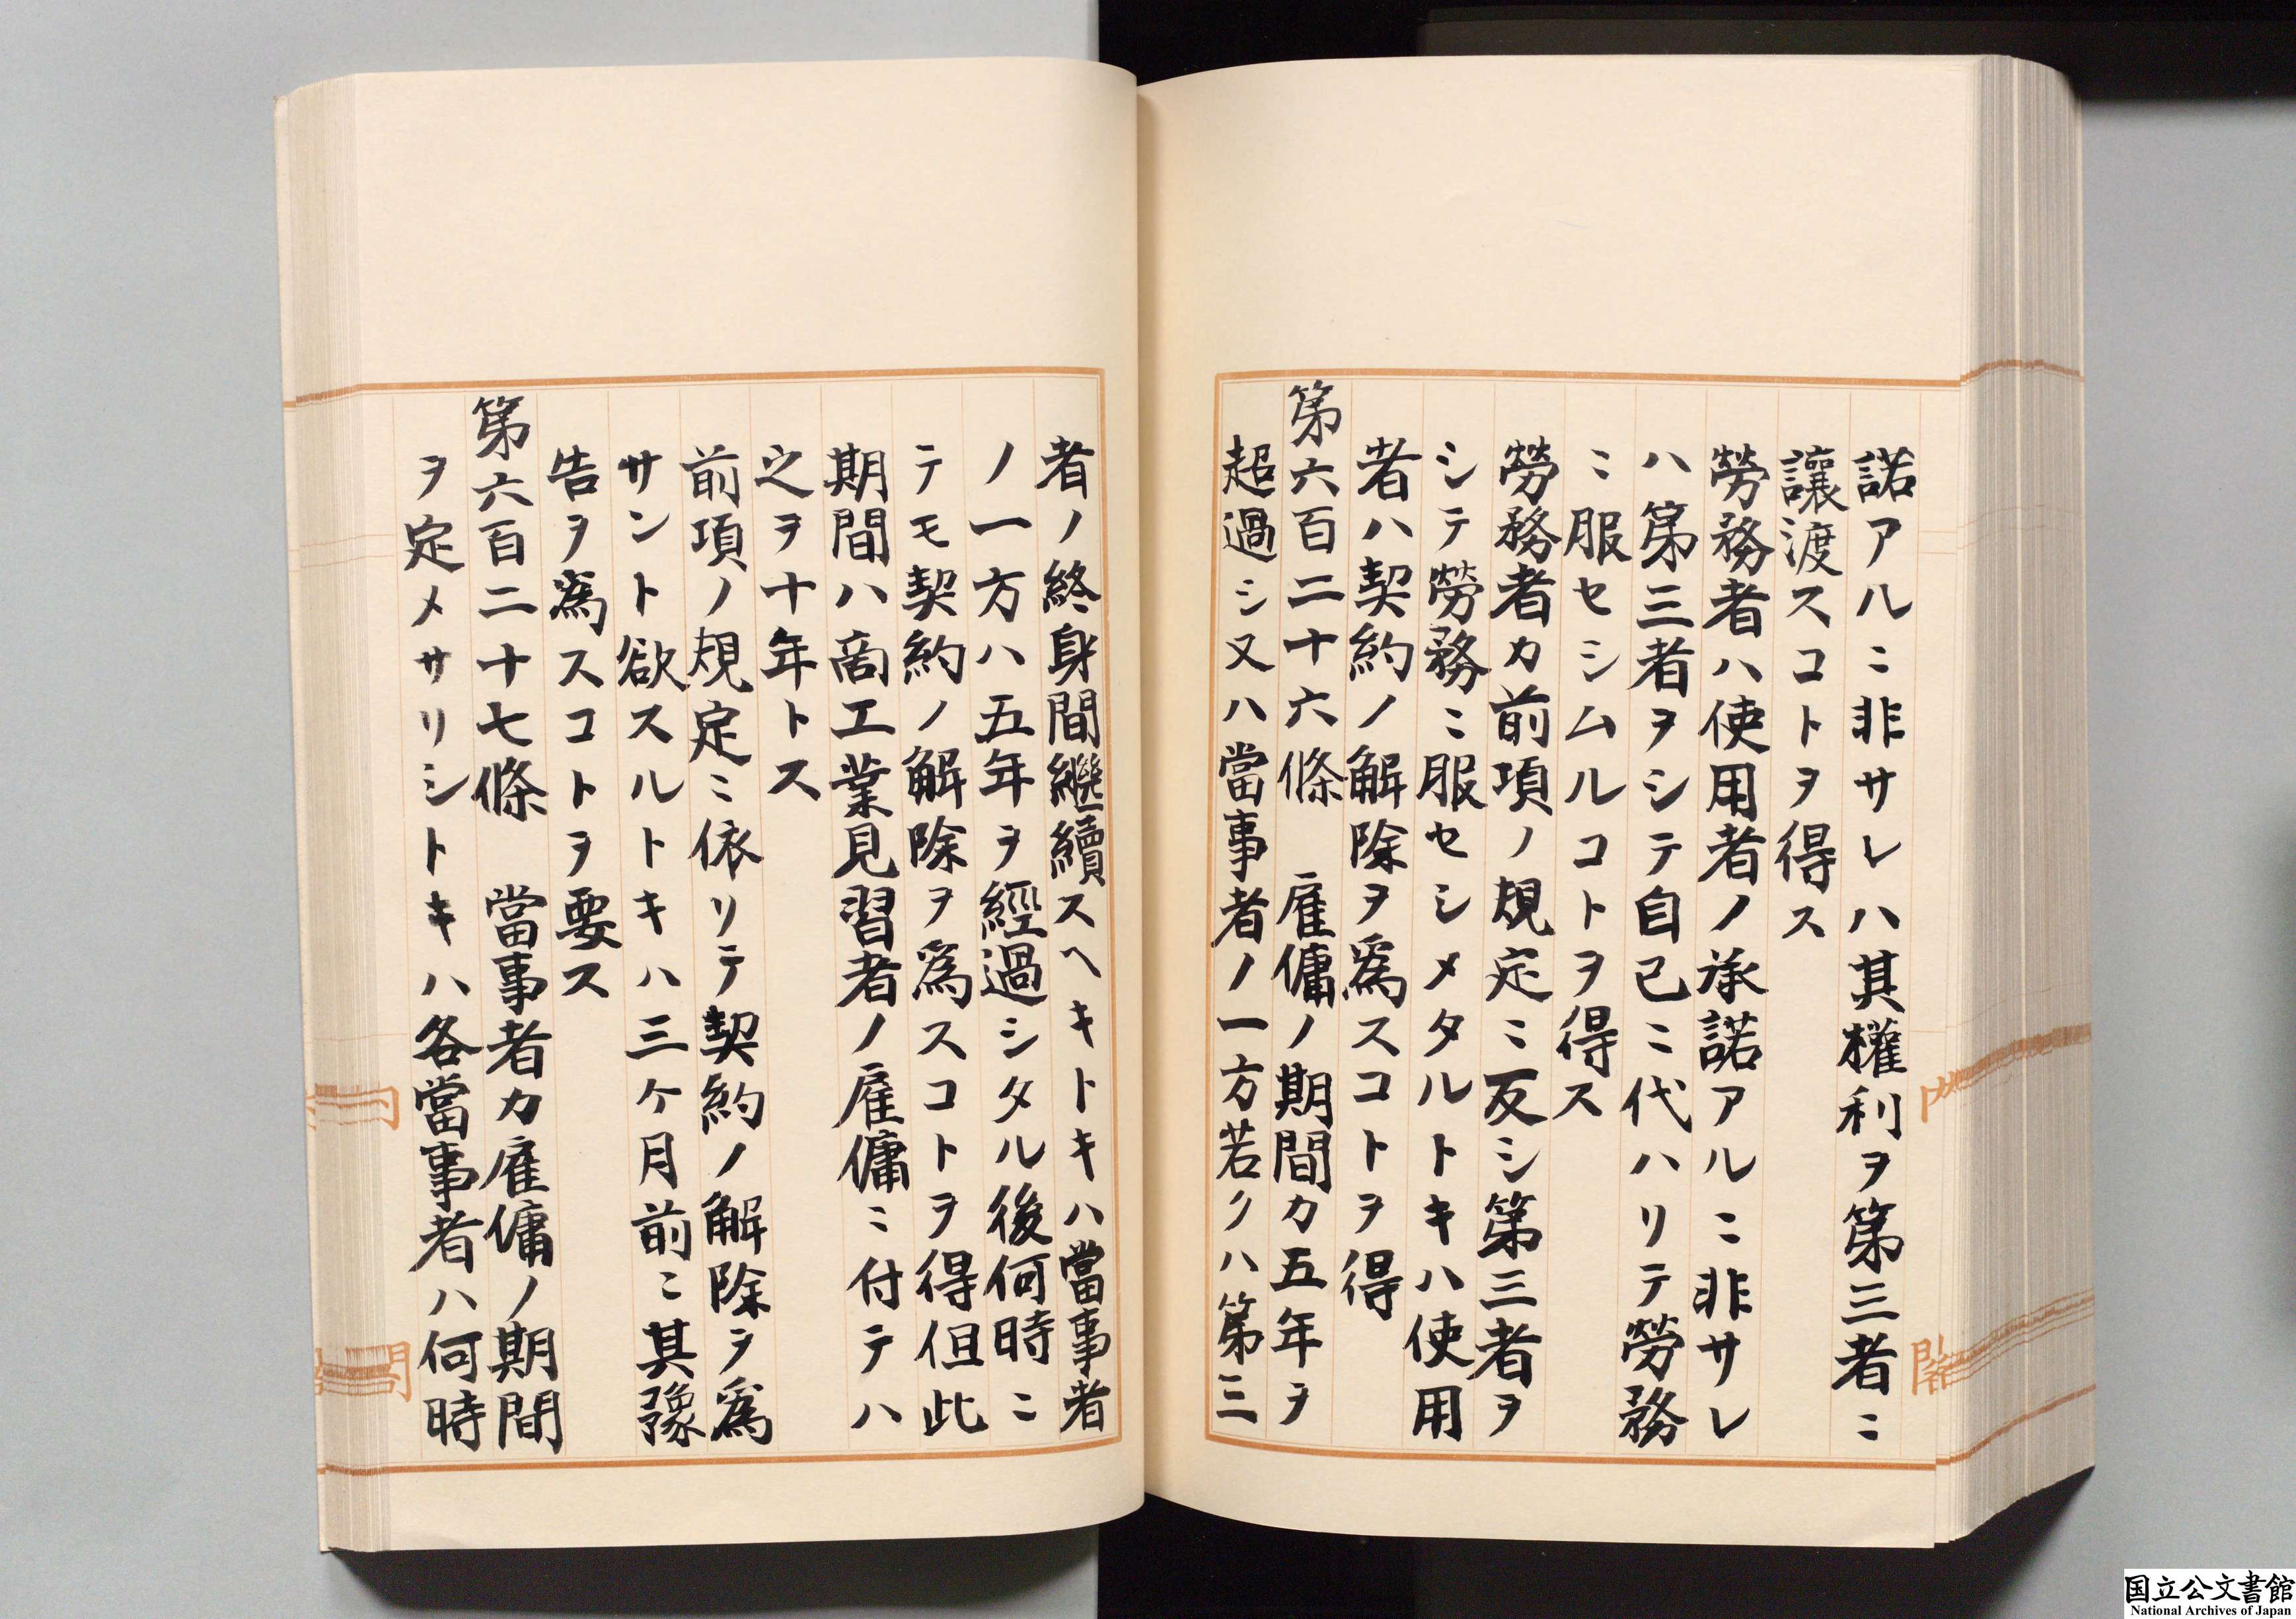 諾アルニ非サレハ其權利ヲ第三者ニ
讓渡スコトヲ得ス
勞務者ハ使用者ノ承諾アルニ非サレ
ハ第三者ヲシテ自己ニ代ハリテ勞務
ニ服セシムルコトヲ得ス
勞務者カ前項ノ規定ニ反シ第三者ヲ
シテ勞務ニ服セシメタルトキハ使用
者ハ契約ノ解除ヲ爲スコトヲ得
第六百二十六條　雇傭ノ期間カ五年ヲ
超過シ又ハ當事者ノ一方若クハ第三
者ノ終身間繼續スヘキトキハ當事者
ノ一方ハ五年ヲ經過シタル後何時ニ
テモ契約ノ解除ヲ爲スコトヲ得但此
期間ハ商工業見習者ノ雇傭ニ付テハ
之ヲ十年トス
前項ノ規定ニ依リテ契約ノ解除ヲ爲
サント欲スルトキハ三ケ月前ニ其豫
告ヲ爲スコトヲ要ス
第六百二十七條　當事者カ雇傭ノ期間
ヲ定メサリシトキハ各當事者ハ何時
国立公文書館
National Archives of Japan